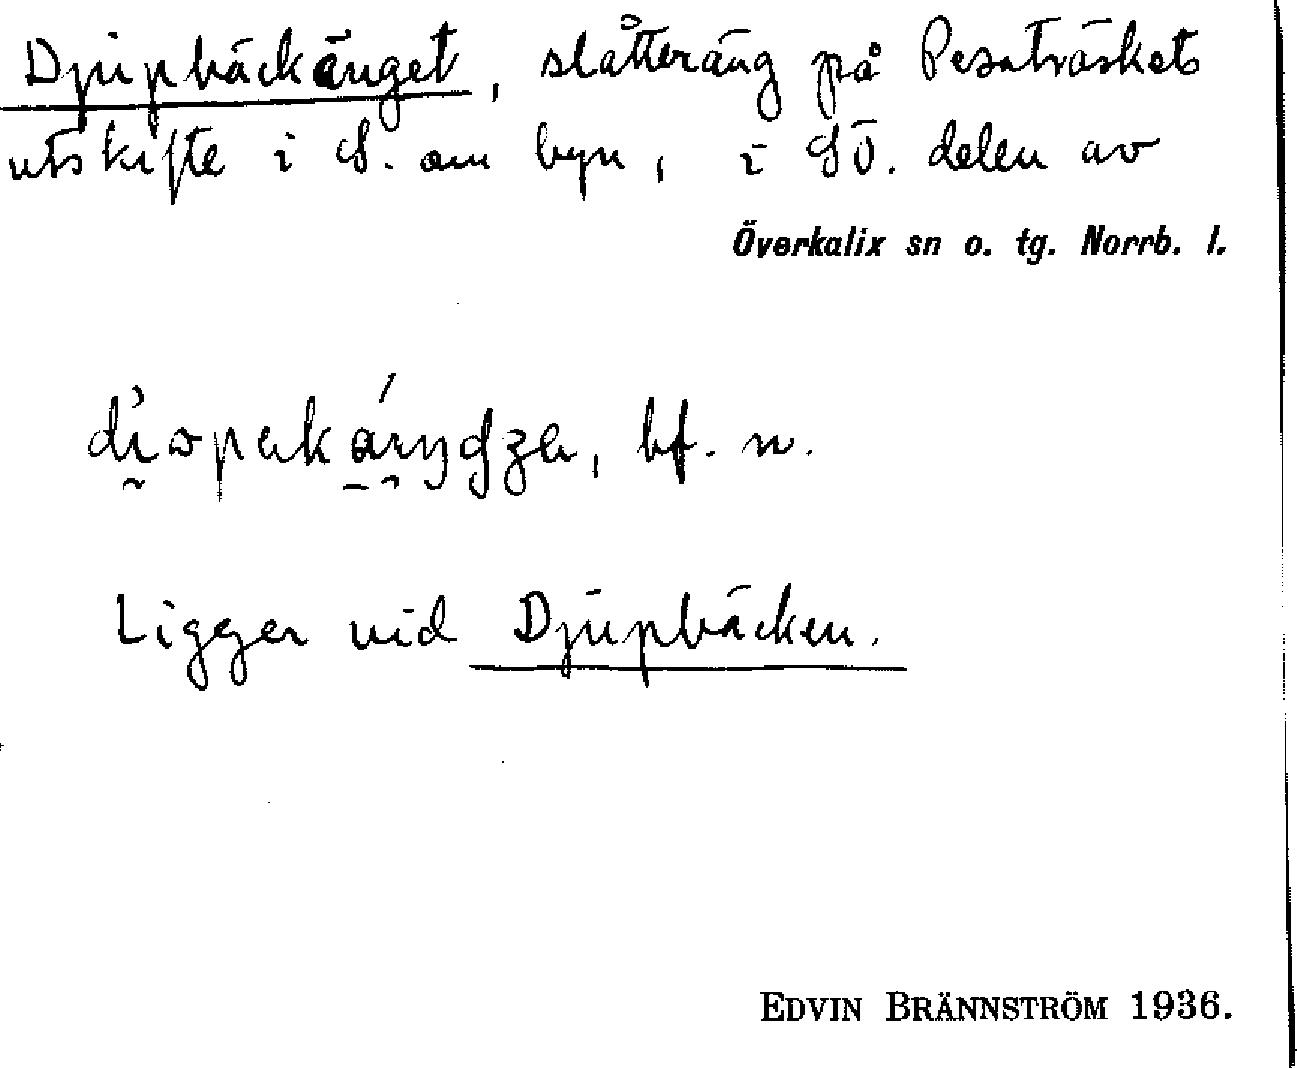 Djupbäckänget, slåtteräng på Pesaträskets
utskifte i S. om byn, i SÖ. delen av
Överkalix sn o. tg. Norrb. l.
bf. n.
Ligger vid Djupbäcken.
EDVIN BRÄNNSTRÖM 1936.